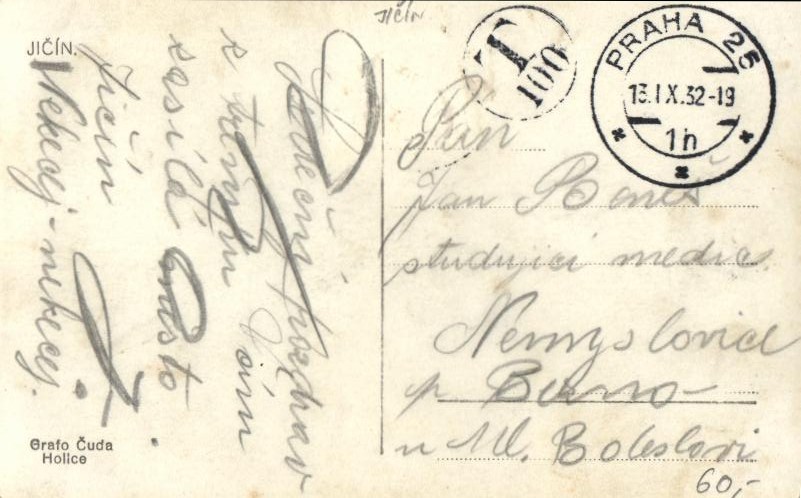 JIČÍN.
JIČÍN
T
100
PRAHA 25
13.IX.32-19
1h
Srdečný pozdrav
s Vám
zasílá město
Jičín
Nekecej-nekecej.
Pan
Jan Beneš
studující medic.
Nemyslovice
p. Bezno
u Ml. Boleslavi
60,-
Grafo Čuda
Holice